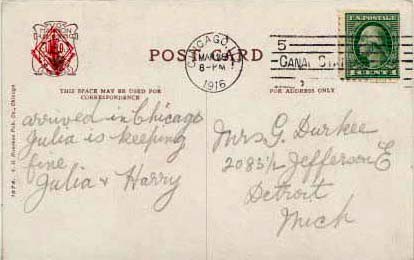 POST CARD
CHICAGO, ILL.
MAR
6-PM
1916
5
CANAL STA
U.S. POSTAGE
1 CENT 1
THIS SPACE MAY BE USED FOR
CORRESPONDENCE
FOR ADDRESS ONLY
arrived in Chicago
Julia is keeping
fine
Julia & Harry
Mrs G. Durkee
2085½ Jefferson E
Detroit
Mich